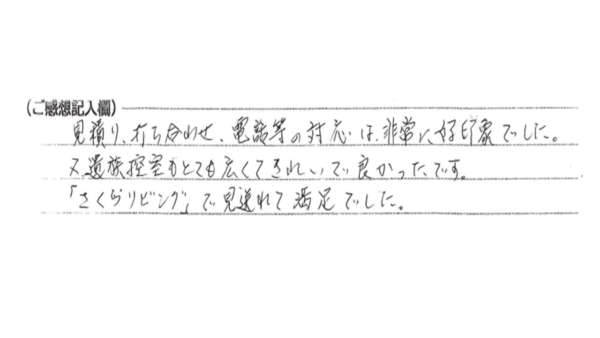 (ご感想記入欄)
見積り、打ち合わせ、電話等の対応は、非常に好印象でした。
又、遺族控室もとても広くてきれいで良かったです。
「さくらリビング」で見送れて満足でした。